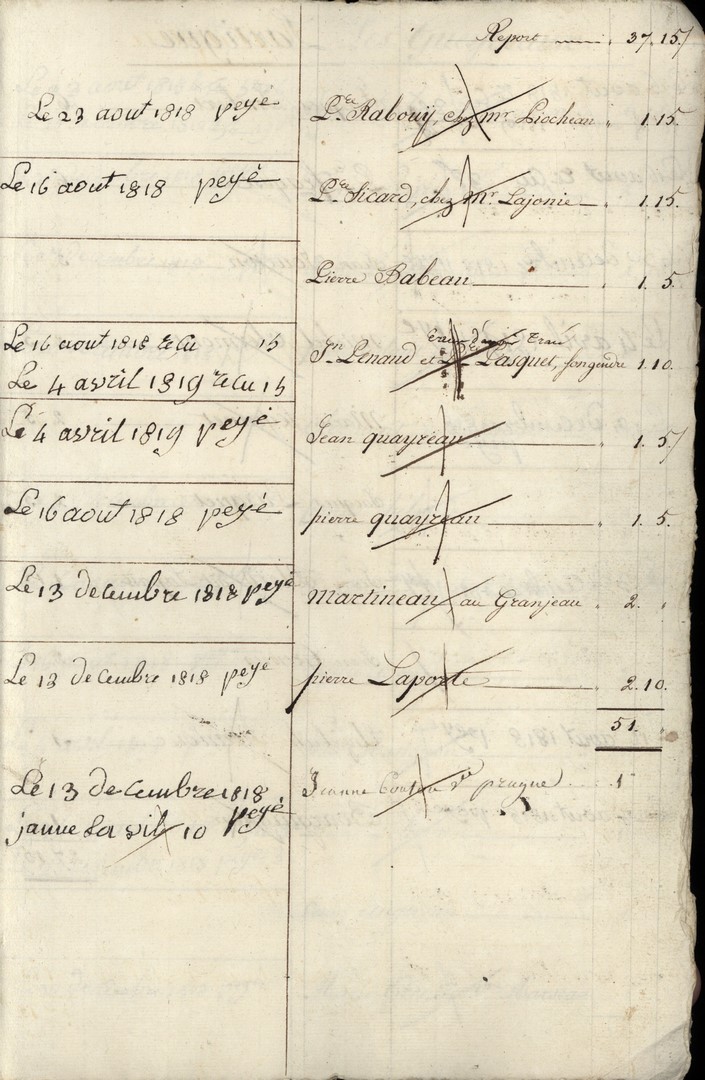 Report 37. 15
Le 23 aout 1818 peyé P.re Rabouÿ, chez mr Piocheau 1. 15.
Le 16 aout 1818 peyé P.re Sicard, chez Mr. Lajonie 1. 15.
Pierre Babeau 1. 5.
Le 16 aout 1818 recu 15
Jn. Lenaud et Lasquet, son gendre 1. 10.
Le 4 avril 1819 recu 15
Le 4 avril 1819 peyé Jean quayreau 1. 5
Le 16 aout 1818 peyé pierre quayreau 1. 5.
Le 13 decembre 1818 peyé Martineau, au Granjeau 2.
Le 13 decembre 1818 peyé pierre Laporte 2. 10.
51.
Le 13 decembre 1818 peyé Jeanne prugue 1
10